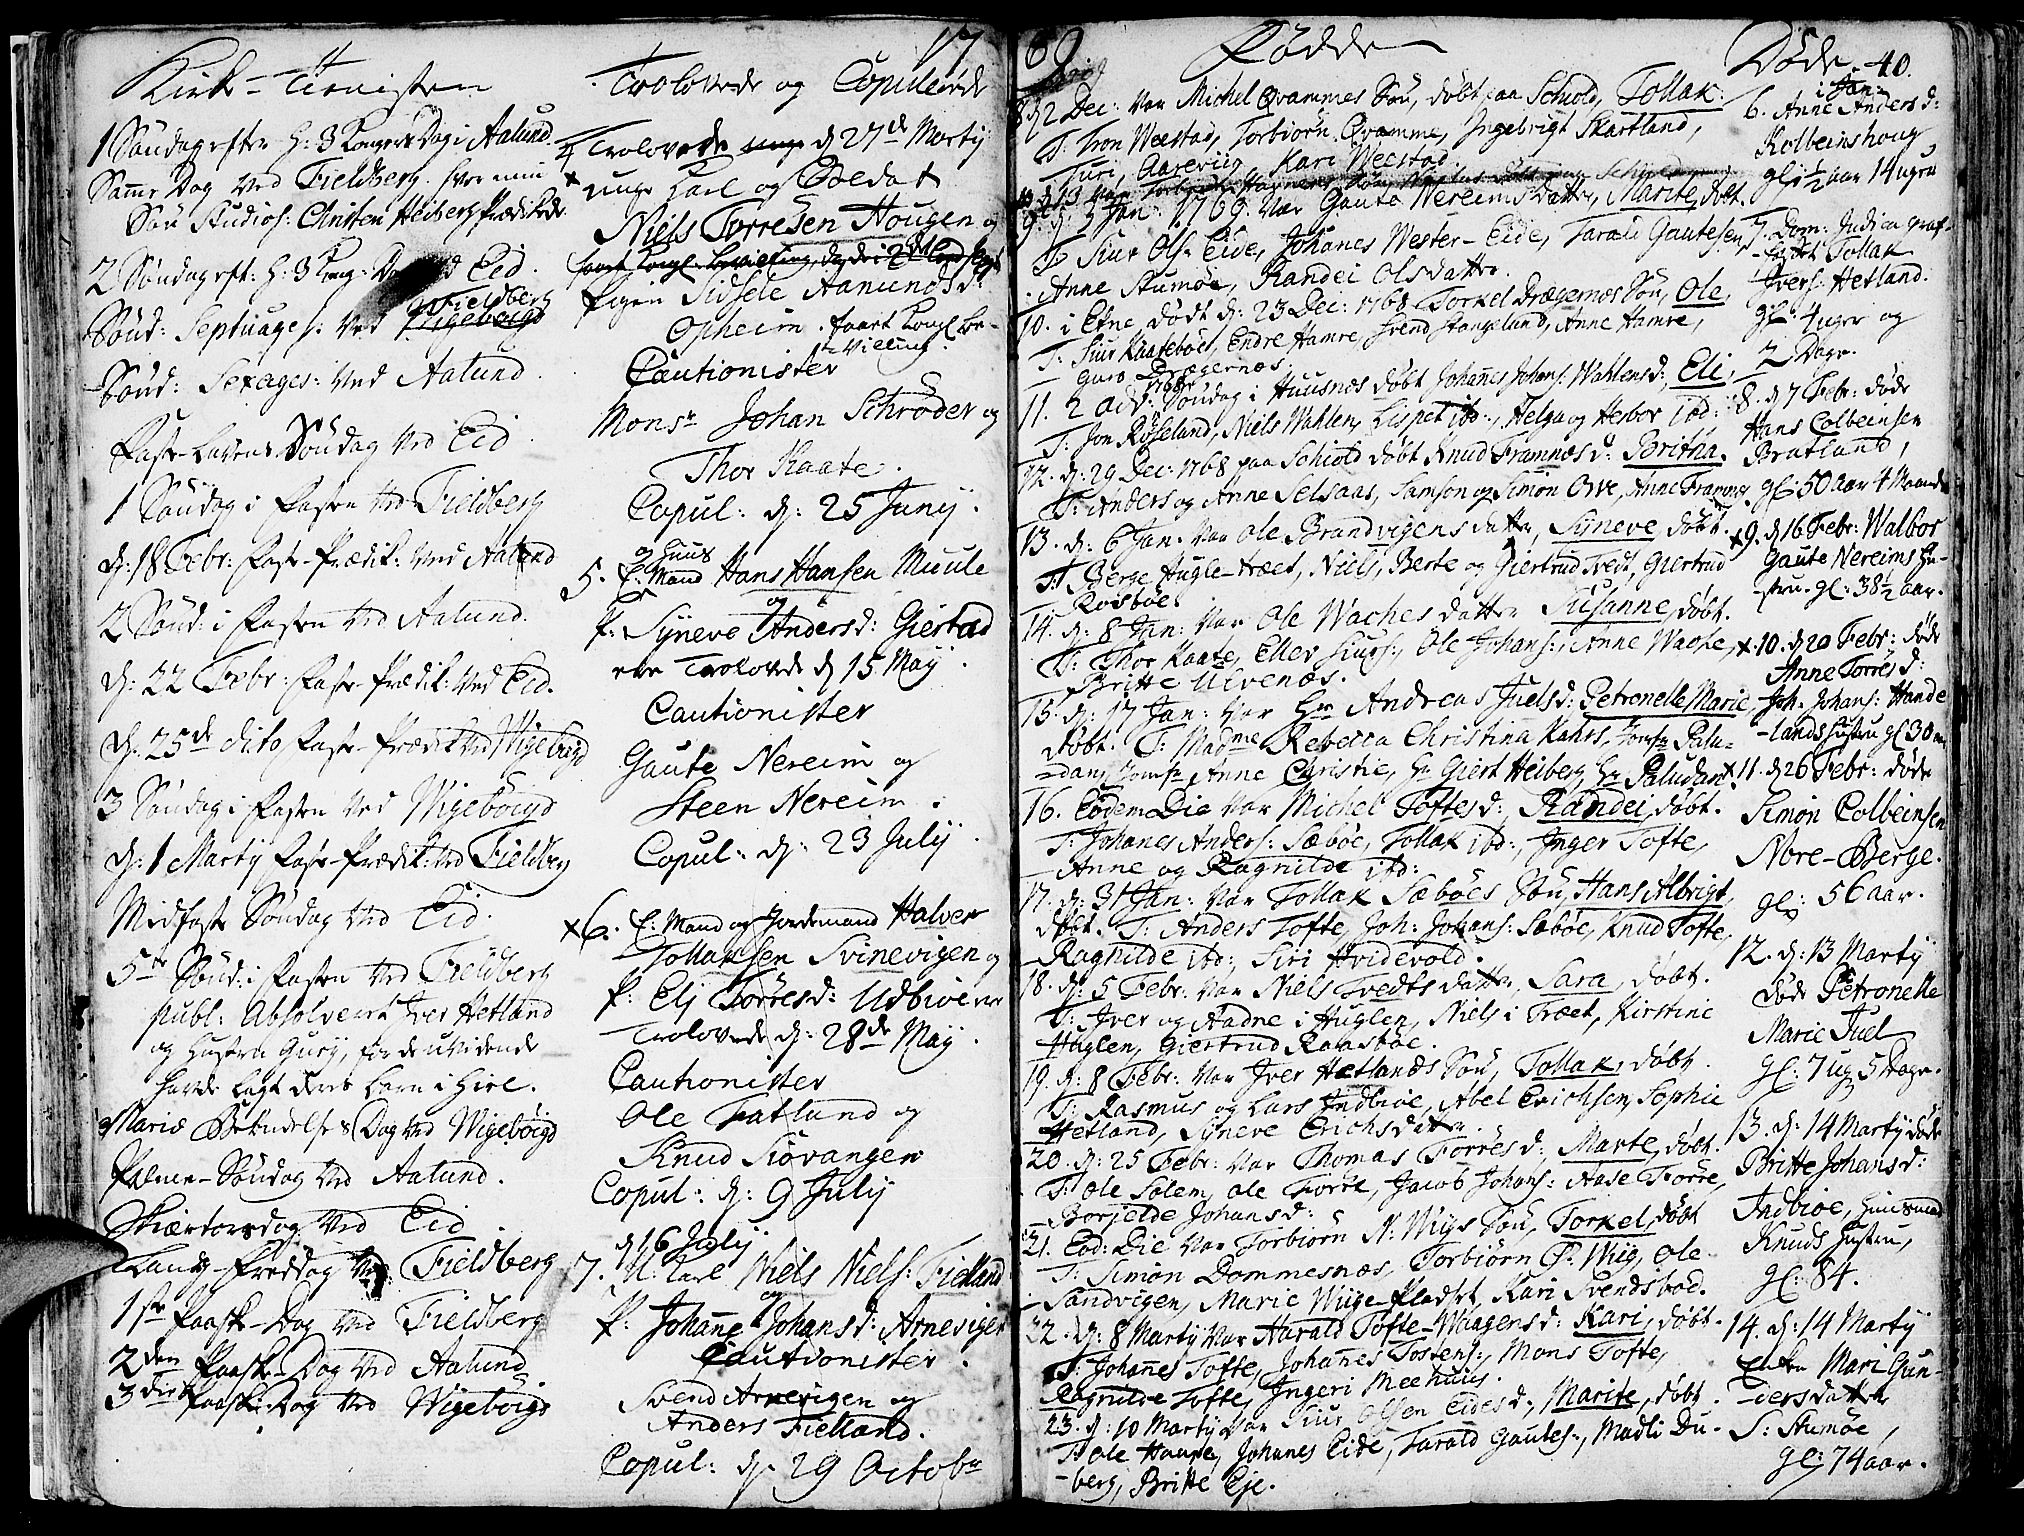 17
Kirk-Tienisten
1 Søndag efter H: 3 Kongers Dag i Aalund.
Samme Dag ved Fieldberg hvor min
Søn Studios: Christen Heiberg Prædikede.
2 Søndag eft: H: 3 Kong: Dag ved Eid.
Sønd: Septuages: ved Fieldberg
Sønd: Sexages: ved Aalund.
Faste-Lavens Søndag ved Eid.
1 Søndag i Fasten ved Fieldberg
d: 18 Febr: Faste-Prædik: ved Aalund
2 Sønd: i Fasten ved Aalund.
d: 22 Febr: Faste-Prædik: ved Eid.
d: 25de dito Faste-Prædik: ved Wigebøigd
3 Søndag i Fasten ved Wigebøigd
d: 1 Martÿ Faste-Prædik: ved Fieldberg
Midfaste Søndag ved Eid.
5te Sønd: i Fasten ved Fieldberg
publ: Absolveret Iver Hetland
og Hustru Gurÿ, for de uvidende
havde lagt deres barn i hiel.
Mariæ Bekiendelses Dag ved Wigebøigd
Palme-Søndag ved Aalund.
Skiærtorsdag ved Eid
Lang-Fredag ved Fieldberg
1ste Paaske-Dag ved Fieldberg
2den Paaske-Dag ved Aalund
3die Paaske-Dag ved Wigebøigd
Trolovede og Copulerede
4 Trolovede d 27de Martÿ
x unge Karl og Soldat
Niels Torresen Hougen og
Pigen Sidsele Aamundsd:
Opheim. faaet Kongl. Be-
-villing.
Cautionister
Monsr Johan Schrøder og
Thor Kaate.
Copul: d: 25 Junÿ.
5. E: Mand og Huus Hans Hansen Muule
og
P: Sÿneve Andersd: Giertad
ere Trolovede d 15 Maÿ.
Cautionister
Gaute Nereim og
Steen Nereim.
Copul: d: 23 Julÿ.
x6. E: Mand og Jordemand Halver
Tollaksen Svinevigen og
P: Elj Torresd: Udbioe ere
Trolovede d: 28de Maÿ.
Cautionister
Ole Fatland og
Knud Siøvangen
Copul: d: 9 Julÿ
d 16 Julÿ.
7. U: Karl Niels Niels: Fielland
og
P: Johanne Johansd: Arneviger
Cautionister.
Svend Arnevigen og
Anders Fielland.
Copul: d: 29 Octobr
69
Fødde
8. d 2 Dec: var Michel Qvammes Søn, døbt paa Schiold, Tollak:
T: Tron Weestad, Torbiørn Qvamme, Ingebrigt Skartland,
Turi, Aareviig, Kari Weestad.
9. d: 3 Jan: 1769. var Gaute Nereims datter, Marite, døbt.
T: Siur Ols: Eide, Johanes Wester-Eide, Tarald Gautesen,
Anne Stumoe, Randei Olsdatter.
10. i Etne døbt d: 23 Dec: 1768 Torkel Drægernes Søn, Ole,
T: Siur Kaatebøe, Endre Hamre, Svend Stangeland, Anne Hamre,
Guro Drægernes.
11. 2 Adv: Søndag 1768 i Huusnes døbt Johanes Johans: Wahlensd:, Eli,
T: Jon Røseland, Niels Wahlen, Lispet ibd:, Helga og Herbor ibd:
12. d: 29 Dec: 1768 paa Schiold døbt Knud Framnesd: Britha.
T: Anders og Anne Selsaas, Samson og Simon Ove, Anne Framnes.
13. d: 6 Jan: var Ole Brandvigens datter, Sÿneve, døbt.
T: Berge Hugle-træet, Niels, Berte og Giertrud Tvedt, Giertrud
Rosbøe.
14. d: 8 Jan: var Ole Waches datter Susanne, døbt.
T: Thor Kaate, Eller Siurs:, Ole Johans:, Anne Waage,
Britte Ulvenæs.
15. d: 17 Jan: var Hr Andreas Juelsd: Petronelle Marie,
døbt. T: Madme Rebecca Christina Kahrs, Jomfr Palu-
-dan, Jomfr Anne Christie, Hr Giert Heiberg, Hr Paludan.
16. Eodem Die var Michel Toftesd:, Randei, døbt.
T: Johanes Anders: Sæbøe, Tollak ibd:, Inger Tofte,
Anne og Ragnilde ibd:
17. d: 31 Jan: var Tollak Sæbøes Søn, Hans Albrigt,
døbt. T: Anders Tofte, Joh: Johans: Sæbøe, Knud Tofte,
Ragnilde ibd:, Siri Hvidevold.
18. d: 5 Febr: var Niels Tvedts datter, Sara, døbt.
T: Iver og Aadne i Huglen, Niels i Træet, Kirstine
Huglen, Giertrud Raasbøe.
19. d: 8 Febr: var Iver Hetlands Søn, Tollak, døbt.
T: Rasmus og Lars Indbioe, Abel Erichsen, Sophie
Hetland, Sÿneve Erichsdatter.
20. d: 25 Febr: var Thomas Torresd: Marte, døbt.
T: Ole Solem, Ole Torre, Jacob Johans: Aase Torre,
Borjelde Johansd:
21. Eod: Die var Torbiørn N: Wigs Søn, Torkel, døbt
T: Simon Dommesnes, Torbiørn Ø: Wiig, Ole
Sandvigen, Marie Wiige-Pladset, Kari Svendsbøe.
22. d: 8 Martÿ var Harald Tofte-Waagensd: Kari, døbt.
T: Johanes Tofte, Johanes Tostens:, Mons Tofte,
Ragnilde Tofte, Ingeri Meehuus.
23. d: 10 Martÿ var Siur Olsen Eidesd:, Marite, døbt.
T: Ole Haage, Johanes Eide, Tarald Gautes:, Madli Du-
-berg, Britte Eje.
Døde 40.
i Jan:
6. Anne Andersd:
Kolbeinshoug
gl: 1/2 aar 14 uger
7. Dom: Judica graf-
-fæstet Tollak
Ivers: Hetland.
gl: 4 uger og
2 Dage.
8. d 7 Febr: døde
Hans Colbeinsen
Bratland,
gl: 50 aar 4 Maaned
x9. d 16 Febr: Walbor
Gaute Nereims Hu-
-stru. gl: 38 1/2 aar.
x.10. d 20 Febr: døde
Anne Torresd:
Joh: Johans: Hande
-lands Hustru gl 30
x11. d 26 Febr: døde
Simon Colbeinsen
Nore-Berge.
gl: 56 aar.
12. d: 13 Martÿ
døde Petronelle
Marie Juel
gl: 7 ug 5 Dage.
13. d: 14 Martÿ døde
Britte Johansd:
Indbioe, Huusmand
Knuds Hustru,
gl: 84.
14. d: 14 Martÿ
Enken Mari Gun-
-dersdatter
S: Stumøe,
gl: 74 aar.